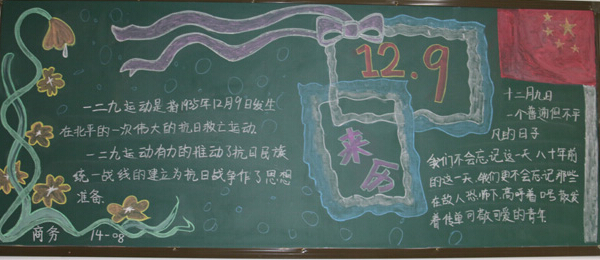 12.9
来历
一二九运动是指1935年12月9日发生
在北平的一次伟大的抗日救亡运动.
一二九运动有力的推动了抗日民族
统一战线的建立为抗日战争作了思想
准备.
十二月九日
一个普通但不平
凡的日子
我们不会忘记这一天.八十年前
的这一天.我们更不会忘记那些
在敌人恐怖下.高呼着口号散发
着传单可敬可爱的青年
商务 14-08